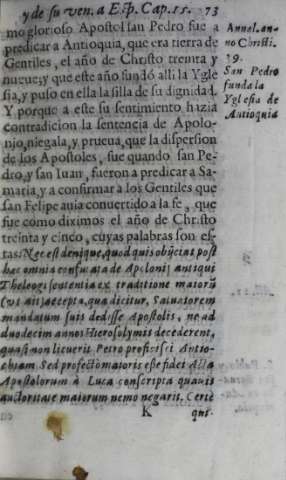 y de su ven. a Esp. Cap. 15. 73
mo glorioso Apostol san Pedro fue a
predicar a Antioquia, que era tierra de
Gentiles, el año de Christo treinta y
nueue; y que este año fundó alli la Ygle
sia, y puso en ella la silla de su dignidad.
Y porque a este su sentimiento hazia
contradicion la sentencia de Apolo-
nio, niegala, y prueua, que la dispersion
de los Apostoles, fue quando san Pe-
dro, y san Iuan, fueron a predicar a Sa-
maria, y a confirmar a los Gentiles que
san Felipe auia conuertido a la fe, que
fue como diximos el año de Christo
treinta y cinco, cuyas palabras son es-
tas: Nec est denique, quod quis obijciat post
hac omnia confutata de Apolonij antiqui
Theologi sententia ex traditione maiorũ
(vt ait) accepta, qua dicitur, Saluatorem
mandatum suis dedisse Apostolis, ne ad
duodecim annos Hierosolymis decederent,
quasi non licuerit Petro proficisci Antio-
chiam. Sed profecto maioris est fidei Acta
Apostolorum à Luca conscripta quauis
auctoritate maiorum nemo negarit. Certè
K qui
Annal. an-
no Christi.
39.
San Pedro
funda la
Yglesia de
Antioquia